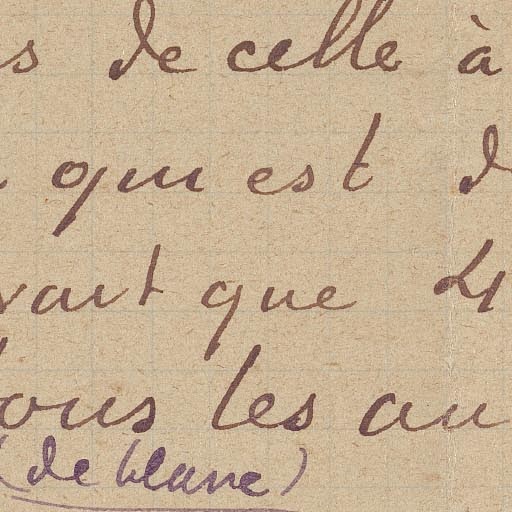 s de celle à
qui est d
vait que 4
ous les au
(de blanc)